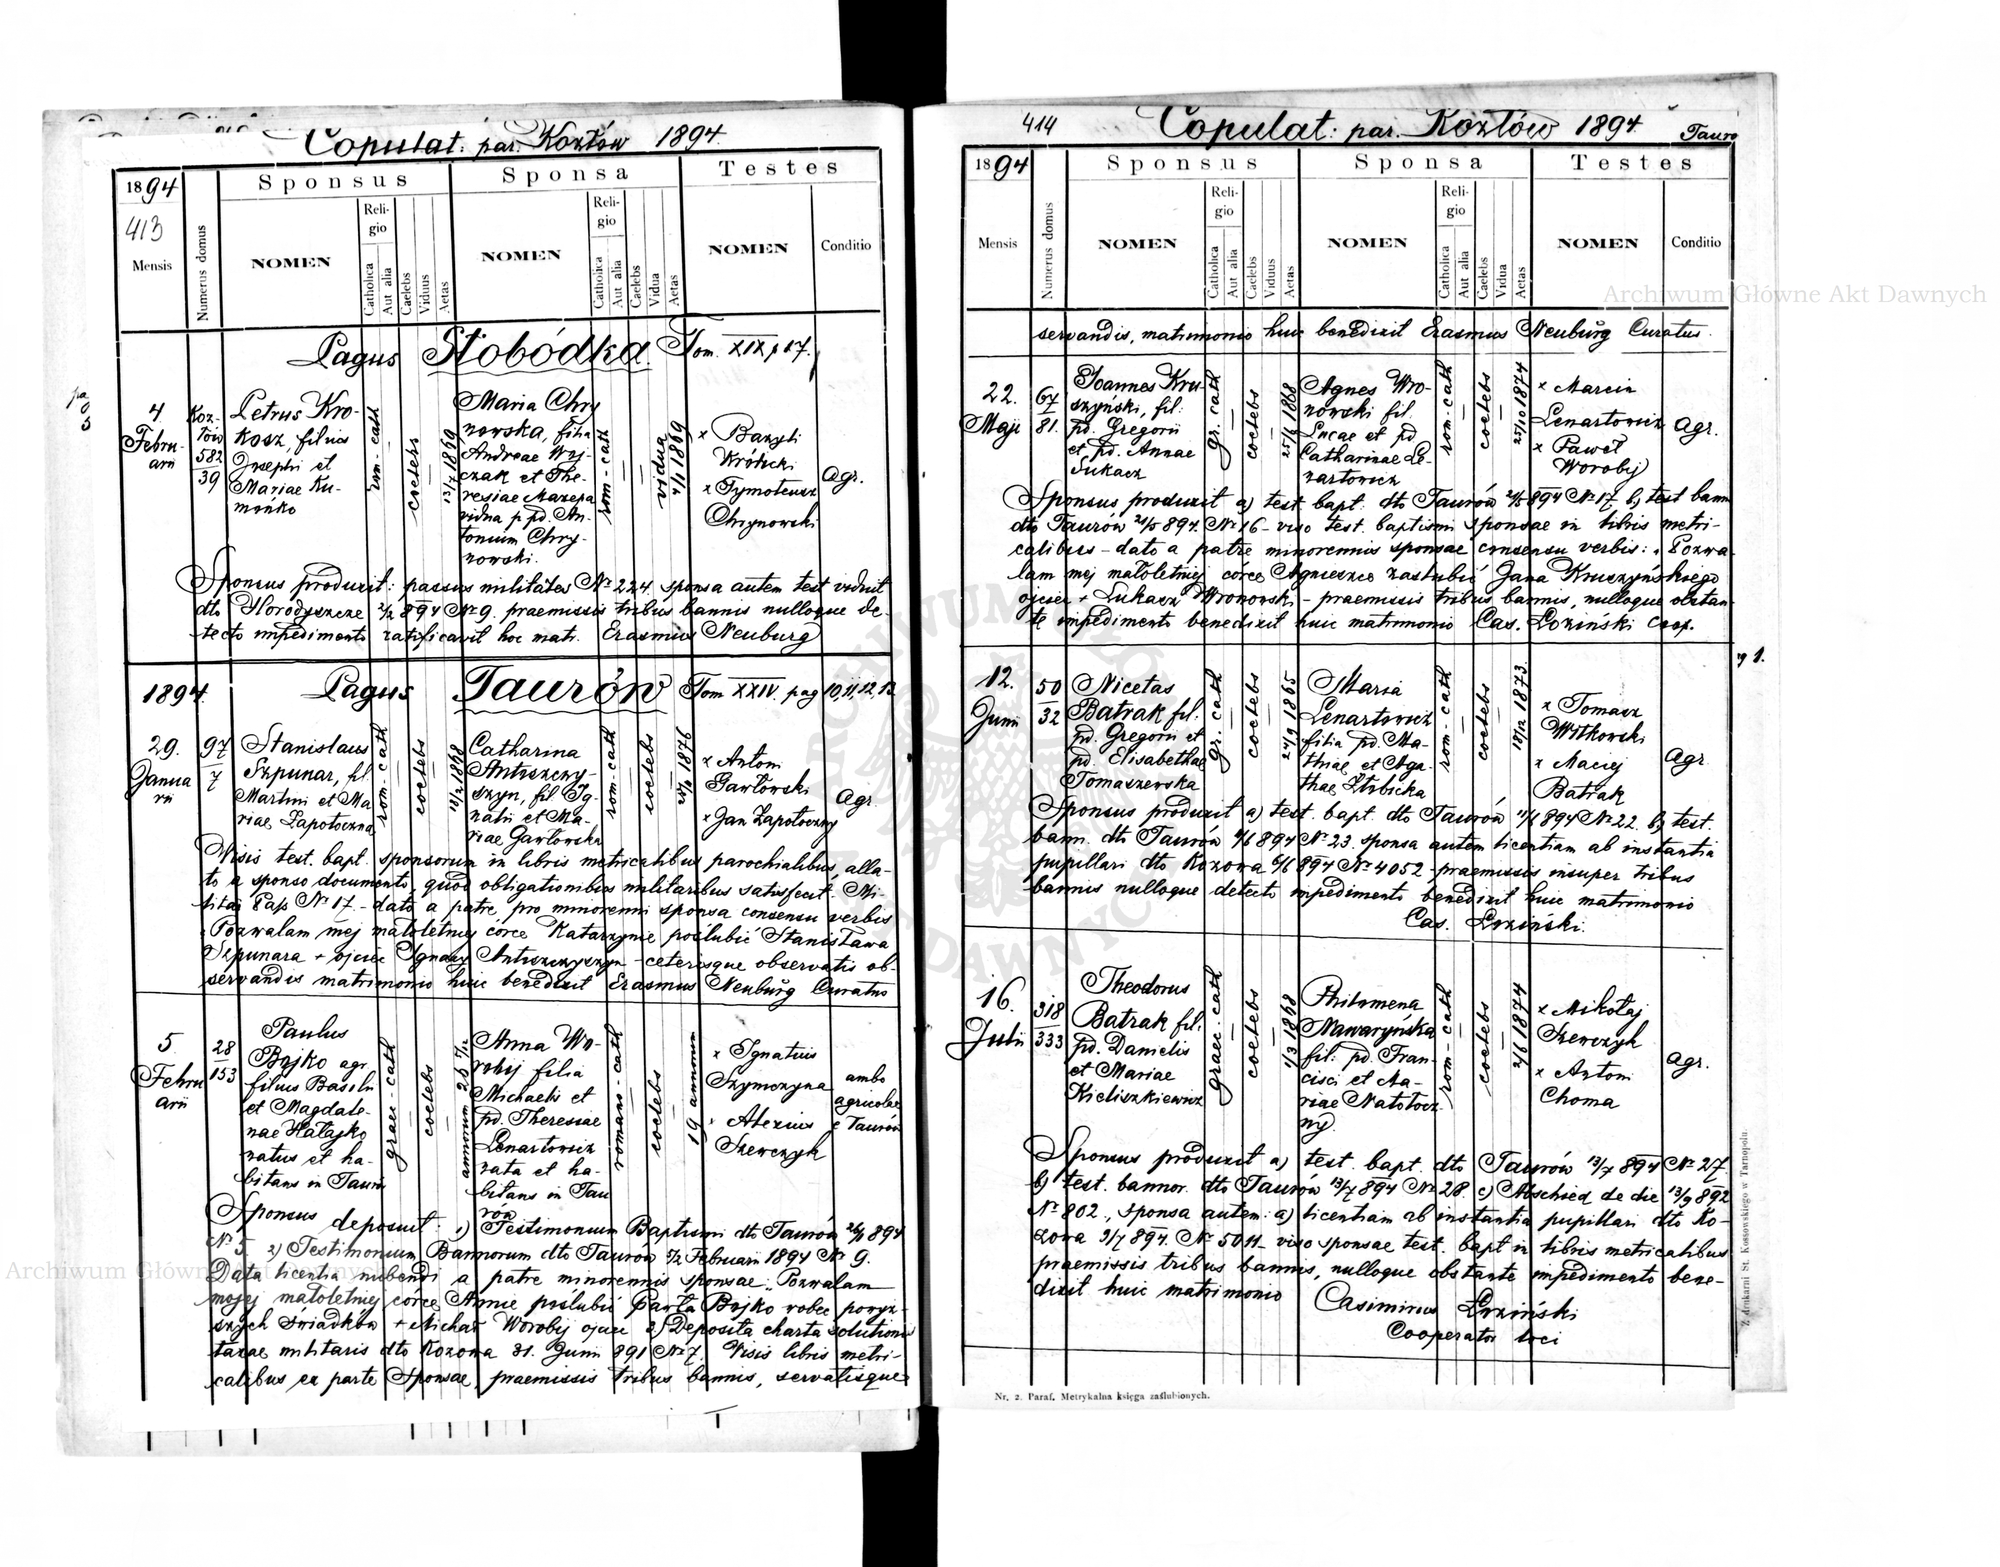 Copulat: par. Kozłów 1894.
1894
413
Mensis
Numerus domus
Sponsus
NOMEN
Religio
Catholica
Aut alia
Caelebs
Viduus
Aetas
Sponsa
NOMEN
Religio
Catholica
Aut alia
Caelebs
Vidua
Aetas
Testes
NOMEN
Conditio
Pagus Słobódka. Tom. XIX p 17.
4
Febru-
arii
Koz-
łów
582
39
Petrus Kro-
kosz, filius
Josephi et
Mariae Ku-
mońko
rom-cath
coelebs
13/7 1869
Maria Chry
nowska, filia
Andreae Woj-
czak et The-
resiae Mazepa
vidua p pd. An-
tonium Chry-
nowski.
rom-cath
vidua
4/1 1869
x Bazyli
Królicki
x Tymoteusz
Chrynowski
Agr.
Sponsus produxit: passus militales № 224. sponsa autem test. viduit
dto Horodyszcze 2/2 894 № 9. praemissis tribus bannis nulloque de-
tecto impedimento ratificavit hoc matr. Erasmus Neuburg
1894. Pagus Taurów Tom XXIV. pag 10,11,12,13.
29.
Janua
rii
97
7
Stanislaus
Szpunar, fil.
Martini et Ma
riae Zapotoczna
rom-cath
coelebs
Catharina
Antuszczy-
szyn, fil. Ig-
natii et Ma-
riae Gawłowska
rom-cath
coelebs
x Antoni
Gawłowski
x Jan Zapotoczny
Agr.
Visis test. bapt. sponsorum in libris metricalibus parochialibus, alla-
to a sponso documento, quod obligationibus militaribus satisfecit. Mi-
litär Pass № 17. - dato a patre pro minorenni sponsa consensu verbis
"Pozwalam mej małoletniej córce Katarzynie poślubić Stanisława
Szpunara + ojciec Ignacy Antuszczyszyn - ceterisque observatis ob-
servandis matrimonio huic benedixit Erasmus Neuburg Curatus
5
Febru
arii
28
153
Paulus
Bojko agr.
filius Basilii
et Magdale-
nae Hałajko
natus et ha-
bitans in Taurów
graec-cath
coelebs
annorum 26 7/12
Anna Wo-
robij filia
Michaelis et
pd. Theresiae
Lenartowicz
nata et ha-
bitans in Tau
rów
romano-cath
coelebs
19 annorum
x Ignatius
Szymczyna
x Alexius
Szewczyk
ambo
agricolae
e Taurów
Sponsus deposuit: 1) Testimonium Baptismi dto Taurów 26/1 894
№ 5. 2) Testimonium Bannorum dto Taurów 5/2 Februari 1894 № 9.
Data licentia nubendi a patre minorennis sponsae: "Pozwalam
mojej małoletniej córce Annie poślubić Pawła Bojko wobec powyż-
szych świadków + Michał Worobij ojciec 3) Deposita charta solutionis
taxae militaris dto Kozowa 31. Junii 891 № 7. Visis libris metri-
calibus ex parte Sponsae, praemissis tribus bannis, servatisque
414
Copulat: par. Kozłów 1894.
Tauro
1894
Mensis
Numerus domus
Sponsus
NOMEN
Religio
Catholica
Aut alia
Caelebs
Viduus
Aetas
Sponsa
NOMEN
Religio
Catholica
Aut alia
Caelebs
Vidua
Aetas
Testes
NOMEN
Conditio
servandis, matrimonio huic benedixit Erasmus Neuburg Curatus.
22.
Maji
67
81.
Joannes Kru
szyński, fil:
pd. Gregorii
et pd. Annae
Łukacz
gr. cath
coelebs
25/6 1868
Agnes Wro-
nowski fil.
Lucae et pd
Catharinae Le-
nartowicz
rom-cath
coelebs
25/10 1874
x Marcin
Lenartowicz
x Paweł
Worobij
Agr.
Sponsus produxit a) test. bapt. dto Taurów 21/5 894 № 17. b) test bann
dto Taurów 21/5 894. № 16 - viso test. baptismi sponsae in libris metri-
calibus - dato a patre minorennis sponsae consensu verbis: "Pozwa-
lam mej małoletniej córce Agnieszce zaślubić Jana Kruszyńskiego
ojciec + Łukasz Wronowski - praemissis tribus bannis, nulloque obstan-
te impedimento benedixit huic matrimonio Cas. Łoziński Coop.
12.
Junii
50
32
Nicetas
Batrak fil.
pd. Gregorii et
pd. Elisabethae
Tomaszewska
gr. cath
coelebs
24/9 1865
Maria
Lenartowicz
filia pd. Ma-
thiae et Aga-
thae Zterbicka
rom-cath
coelebs
18/12 1873.
x Tomasz
Witkowski
x Maciej
Batrak
Agr
Sponsus produxit a) test. bapt. dto Taurów 11/6 894 № 22. b) test.
bann. dto Taurów 11/6 894 № 23. sponsa autem licentiam ab instantia
pupillari dto Kozowa 6/6 894 № 4052 - praemissis insuper tribus
bannis nulloque detecto impedimento benedixit huic matrimonio
Cas. Łoziński.
16.
Julii
318
333
Theodorus
Batrak fil.
pd. Danielis
et Mariae
Kieliszkiewicz
graec-cath
coelebs
1/3 1868
Philomena
Nawaryńska
fil: pd. Fran-
cisci et Ma-
riae Natołocz
ny.
rom-cath
coelebs
2/6 1874
x Mikołaj
Szewczyk
x Antoni
Choma
Agr.
Sponsus produxit a) test. bapt. dto Taurów 13/7 894 № 27.
b) test. bannor. dto Taurów 13/7 894 № 28. c) Abschied de die 13/9 892
№ 802., sponsa autem: a) licentiam ab instantia pupillari dto Ko-
zowa 9/7 894. № 5011 - viso sponsae test. bapt in libris metricalibus
praemissis tribus bannis, nulloque obstante impedimento bene-
dixit huic matrimonio
Casimirus Łoziński
Cooperator loci
Nr. 2. Paraf. Metrykalna księga zaślubionych.
Z drukarni St. Kossowskiego w Tarnopolu.
Archiwum Główne Akt Dawnych
Archiwum Główne Akt Dawnych